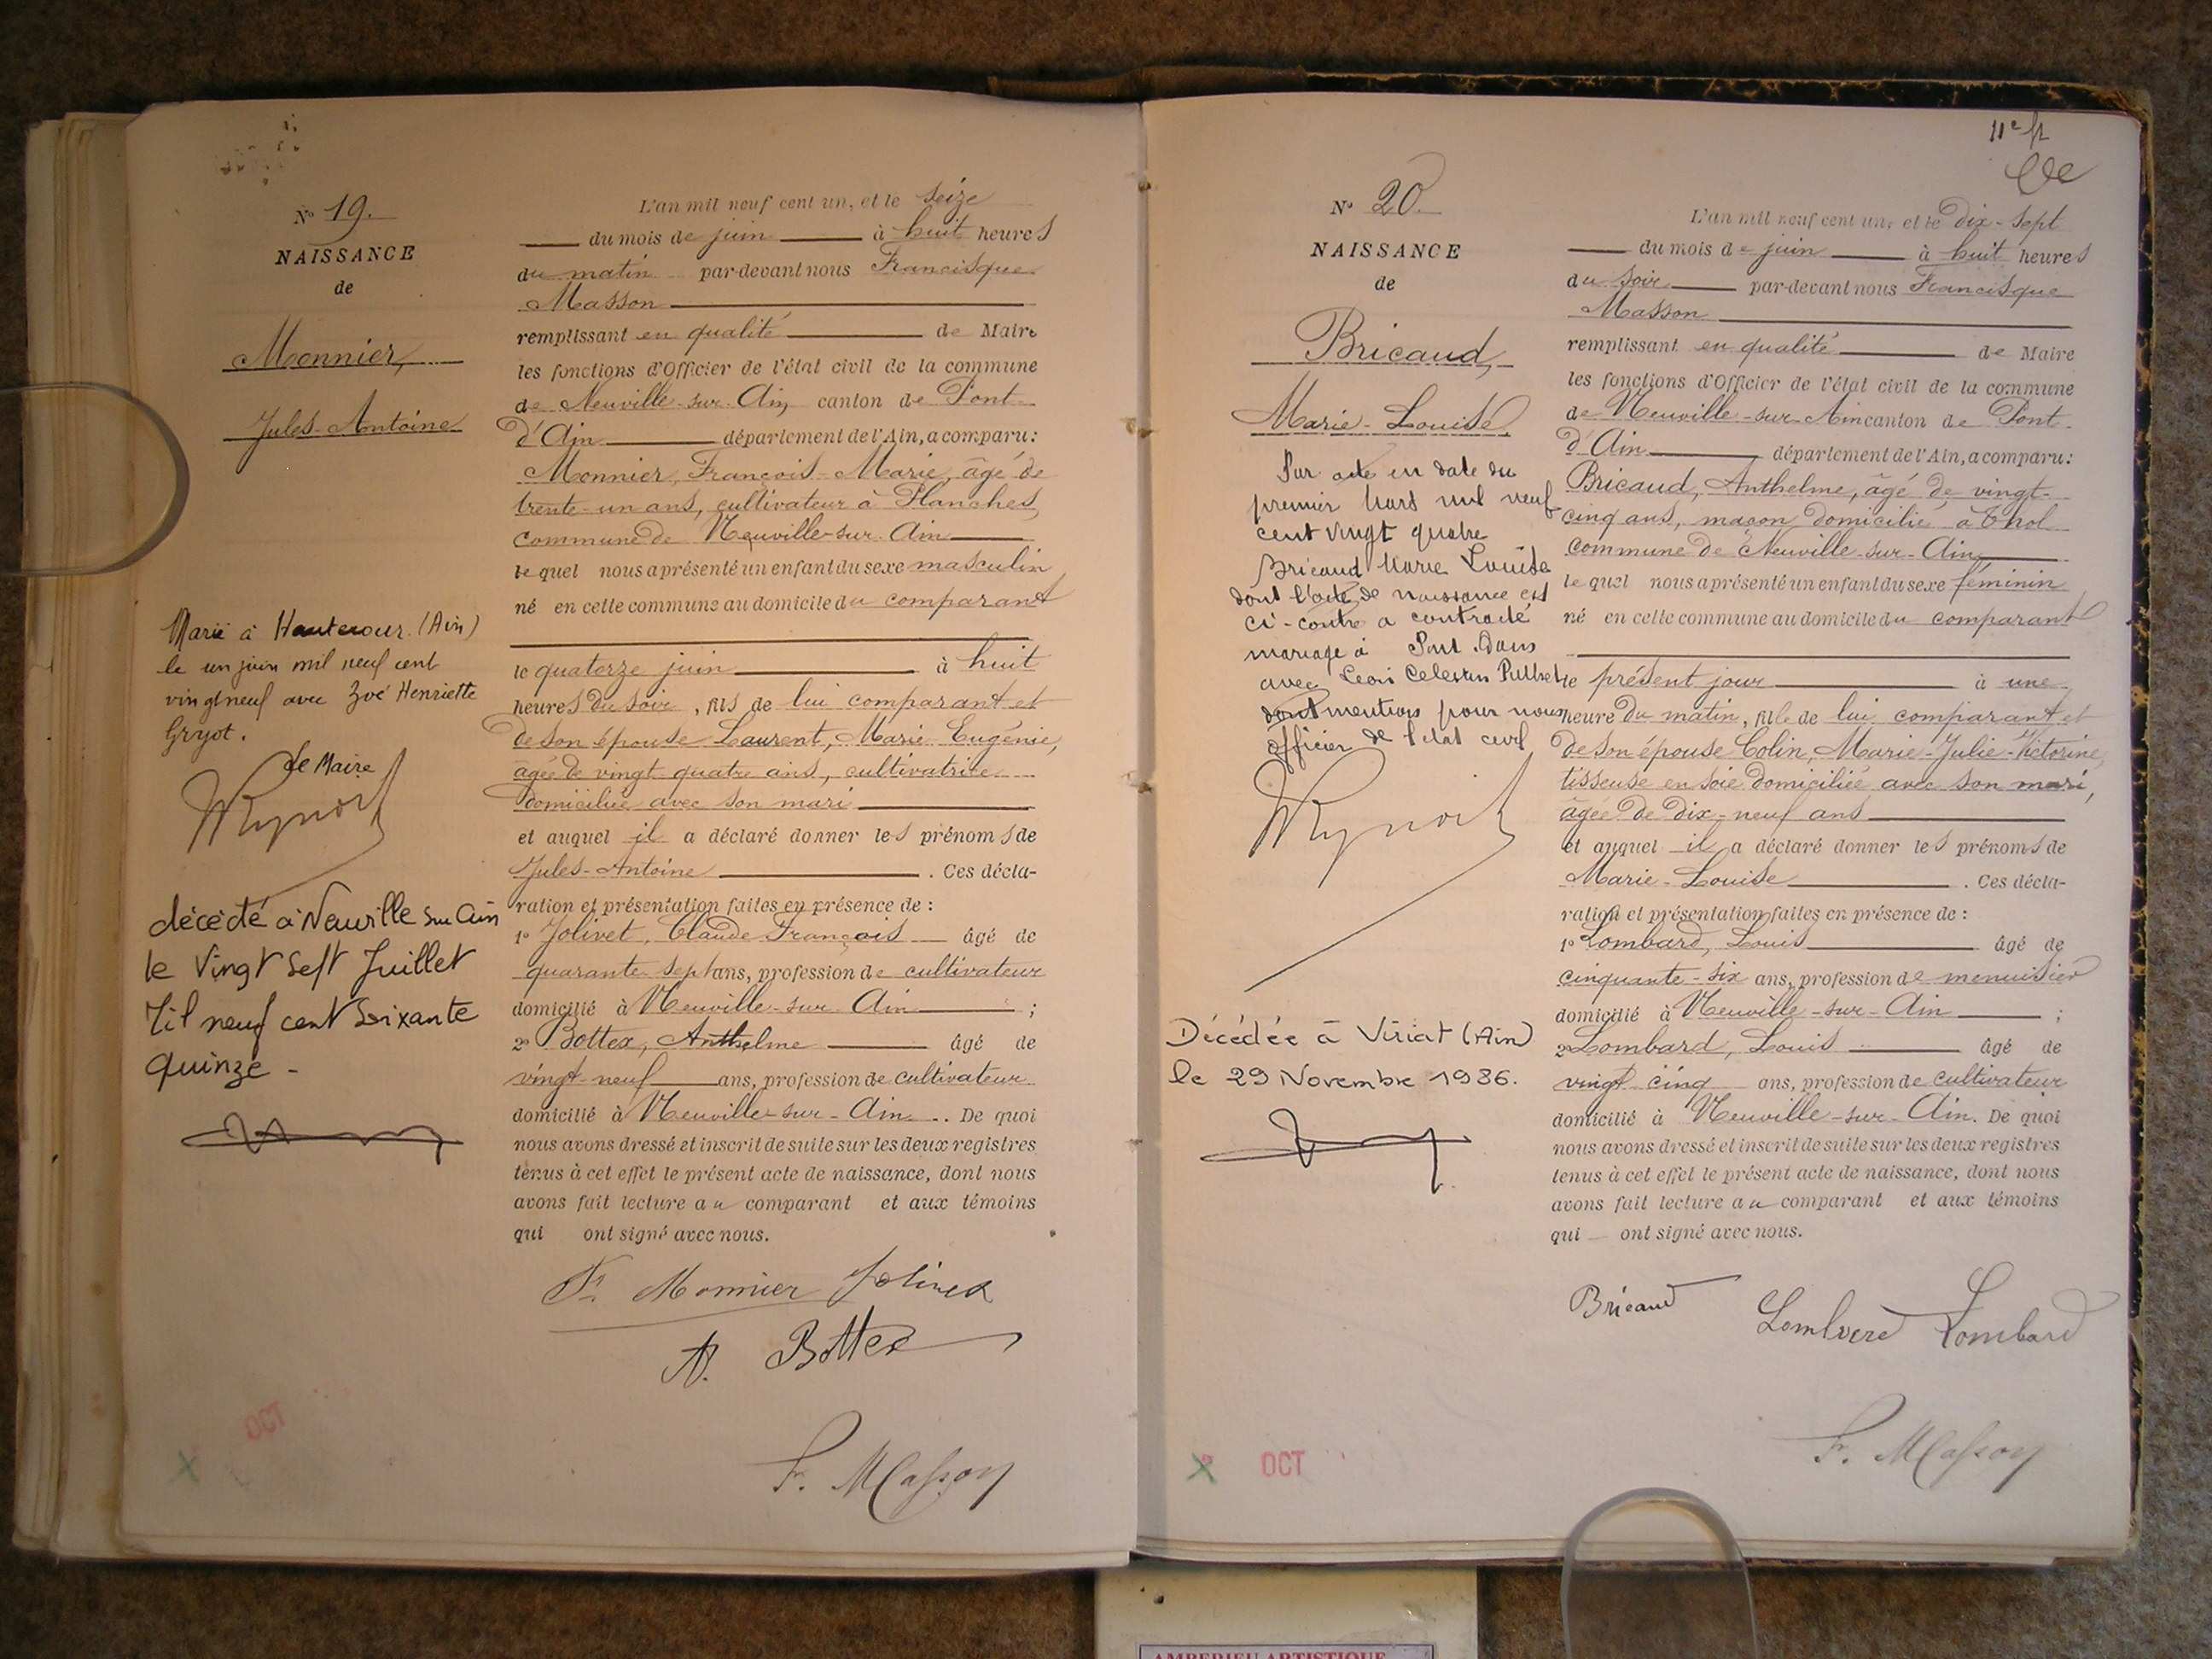 N° 19.
NAISSANCE
de
Monnier,
Jules-Antoine
Marié à Hautecour (Ain)
le un juin mil neuf cent
vingt neuf avec Zoé Henriette
Gryot.
Le Maire
décédé à Neuville sur Ain
le Vingt Sept Juillet
Mil neuf cent Soixante
quinze -
L'an mil neuf cent un, et le seize
du mois de juin à huit heures
du matin par-devant nous Francisque
Masson
remplissant en qualité de Maire
les fonctions d'Officier de l'état civil de la commune
de Neuville-sur-Ain, canton de Pont-
d'Ain département de l'Ain, a comparu:
Monnier, François-Marie, âgé de
trente-un ans, cultivateur à Planches,
commune de Neuville-sur-Ain
lequel nous a présenté un enfant du sexe masculin
né en cette commune au domicile du comparant
le quatorze juin à huit
heures du soir, fils de lui comparant et
de son épouse Laurent, Marie Eugénie,
âgée de vingt quatre ans, cultivatrice
domiciliée avec son mari
et auquel il a déclaré donner les prénoms de
Jules-Antoine. Ces décla-
ration et présentation faites en présence de :
1° Jolivet, Claude François âgé de
quarante-sept ans, profession de cultivateur
domicilié à Neuville-sur-Ain ;
2° Bottex, Anthelme âgé de
vingt-neuf ans, profession de cultivateur
domicilié à Neuville-sur-Ain. De quoi
nous avons dressé et inscrit de suite sur les deux registres
tenus à cet effet le présent acte de naissance, dont nous
avons fait lecture au comparant et aux témoins
qui ont signé avec nous.
Fs Monnier Jolivet
A. Bottex
Fr. Masson
OCT
11e f
N° 20.
NAISSANCE
de
Bricaud,
Marie-Louise
Par acte en date du
premier Mars mil neuf
cent vingt quatre
Bricaud Marie Louise
dont l'acte de naissance est
ci-contre a contracté
mariage à Pont. Dain
avec Léon Celestin
dont mention pour nous
officier de l'état civil
Décédée à Viriat (Ain)
le 29 Novembre 1986.
L'an mil neuf cent un, et le Dix-sept
du mois de juin à huit heures
du soir par-devant nous Francisque
Masson
remplissant en qualité de Maire
les fonctions d'Officier de l'état civil de la commune
de Neuville-sur-Ain canton de Pont-
d'Ain département de l'Ain, a comparu:
Bricaud, Anthelme, âgé de vingt-
cinq ans, maçon, domicilié à Thol
commune de Neuville-sur-Ain,
lequel nous a présenté un enfant du sexe féminin
né en cette commune au domicile du comparant
le présent jour à une
heure du matin, fille de lui comparant et
de son épouse Colin, Marie-Julie-Victorine,
tisseuse en soie domiciliée avec son mari,
âgée de dix-neuf ans
et auquel il a déclaré donner les prénoms de
Marie-Louise. Ces décla-
ration et présentation faites en présence de :
1° Lombard, Louis âgé de
cinquante-six ans, profession de menuisier
domicilié à Neuville-sur-Ain ;
2° Lombard, Louis âgé de
vingt cinq ans, profession de cultivateur
domicilié à Neuville-sur-Ain. De quoi
nous avons dressé et inscrit de suite sur les deux registres
tenus à cet effet le présent acte de naissance, dont nous
avons fait lecture au comparant et aux témoins
qui ont signé avec nous.
Bricaud Lombard Lombard
Fr. Masson
OCT
AMBERIEU ARTISTIQUE